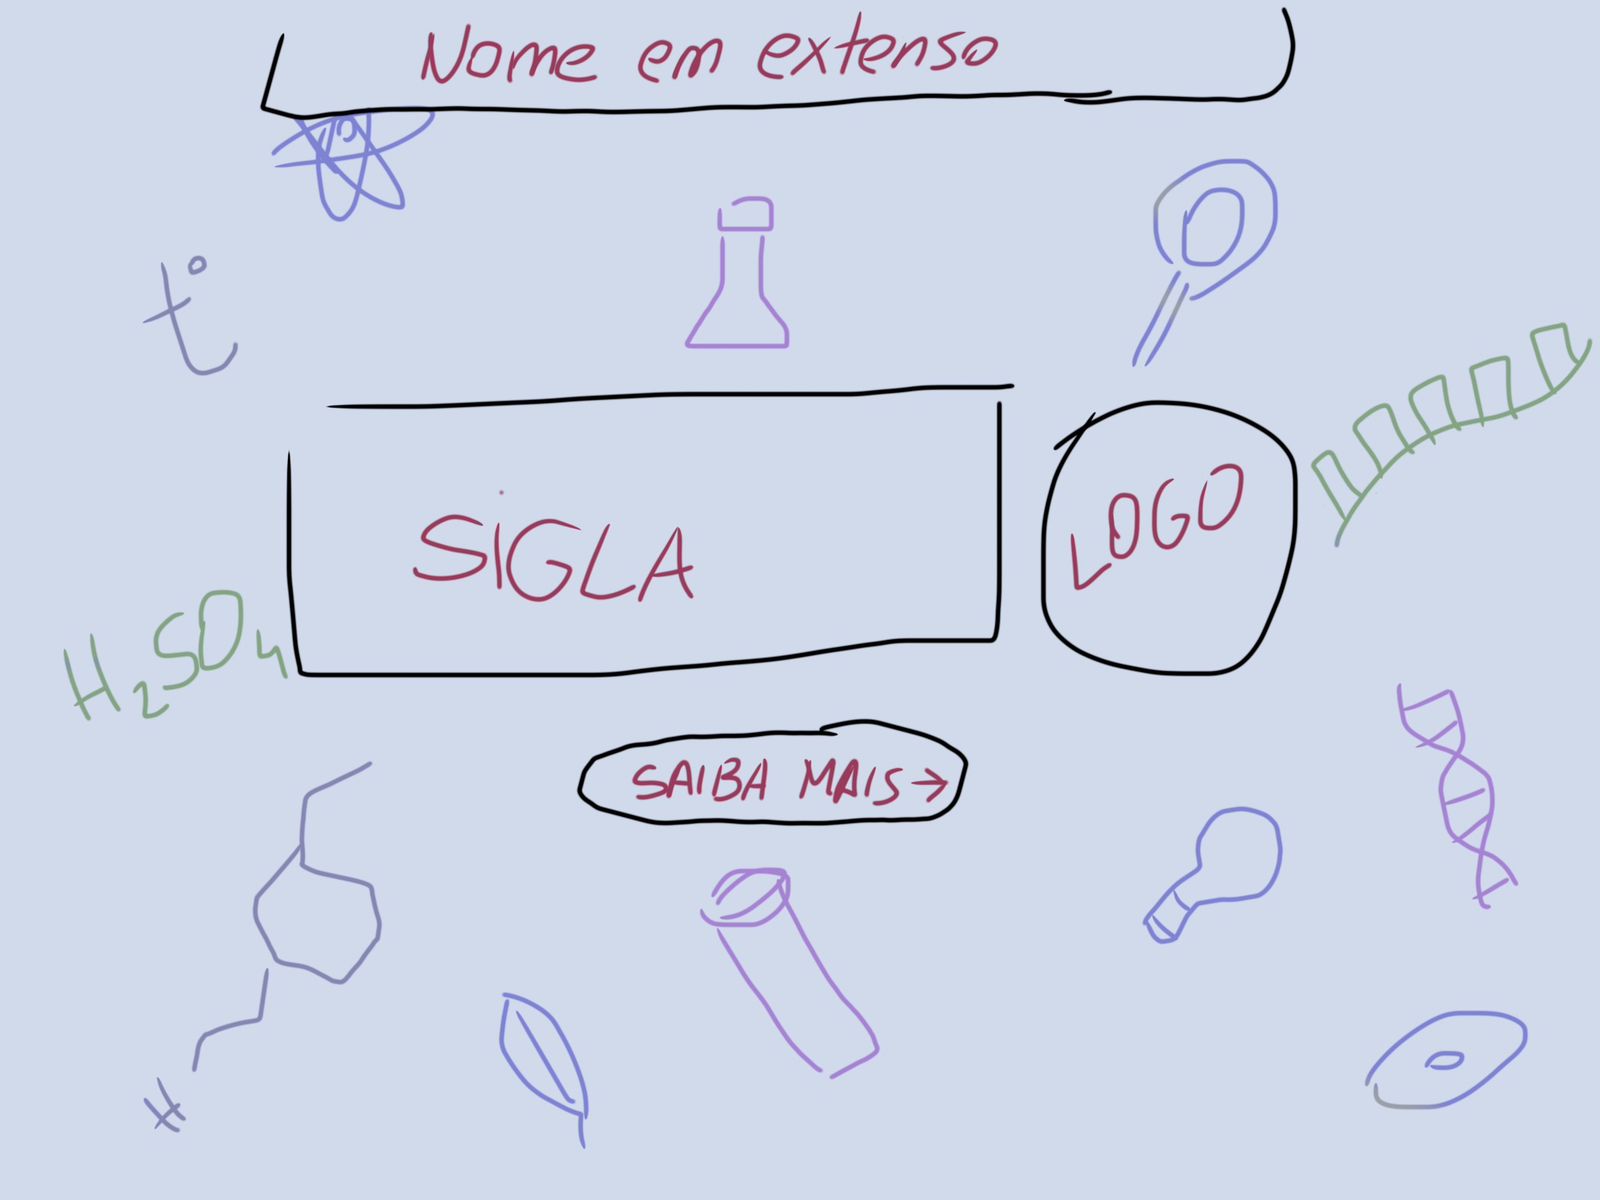 Nome em extenso
t°
SIGLA
LOGO
H₂SO₄
SAIBA MAIS →
H